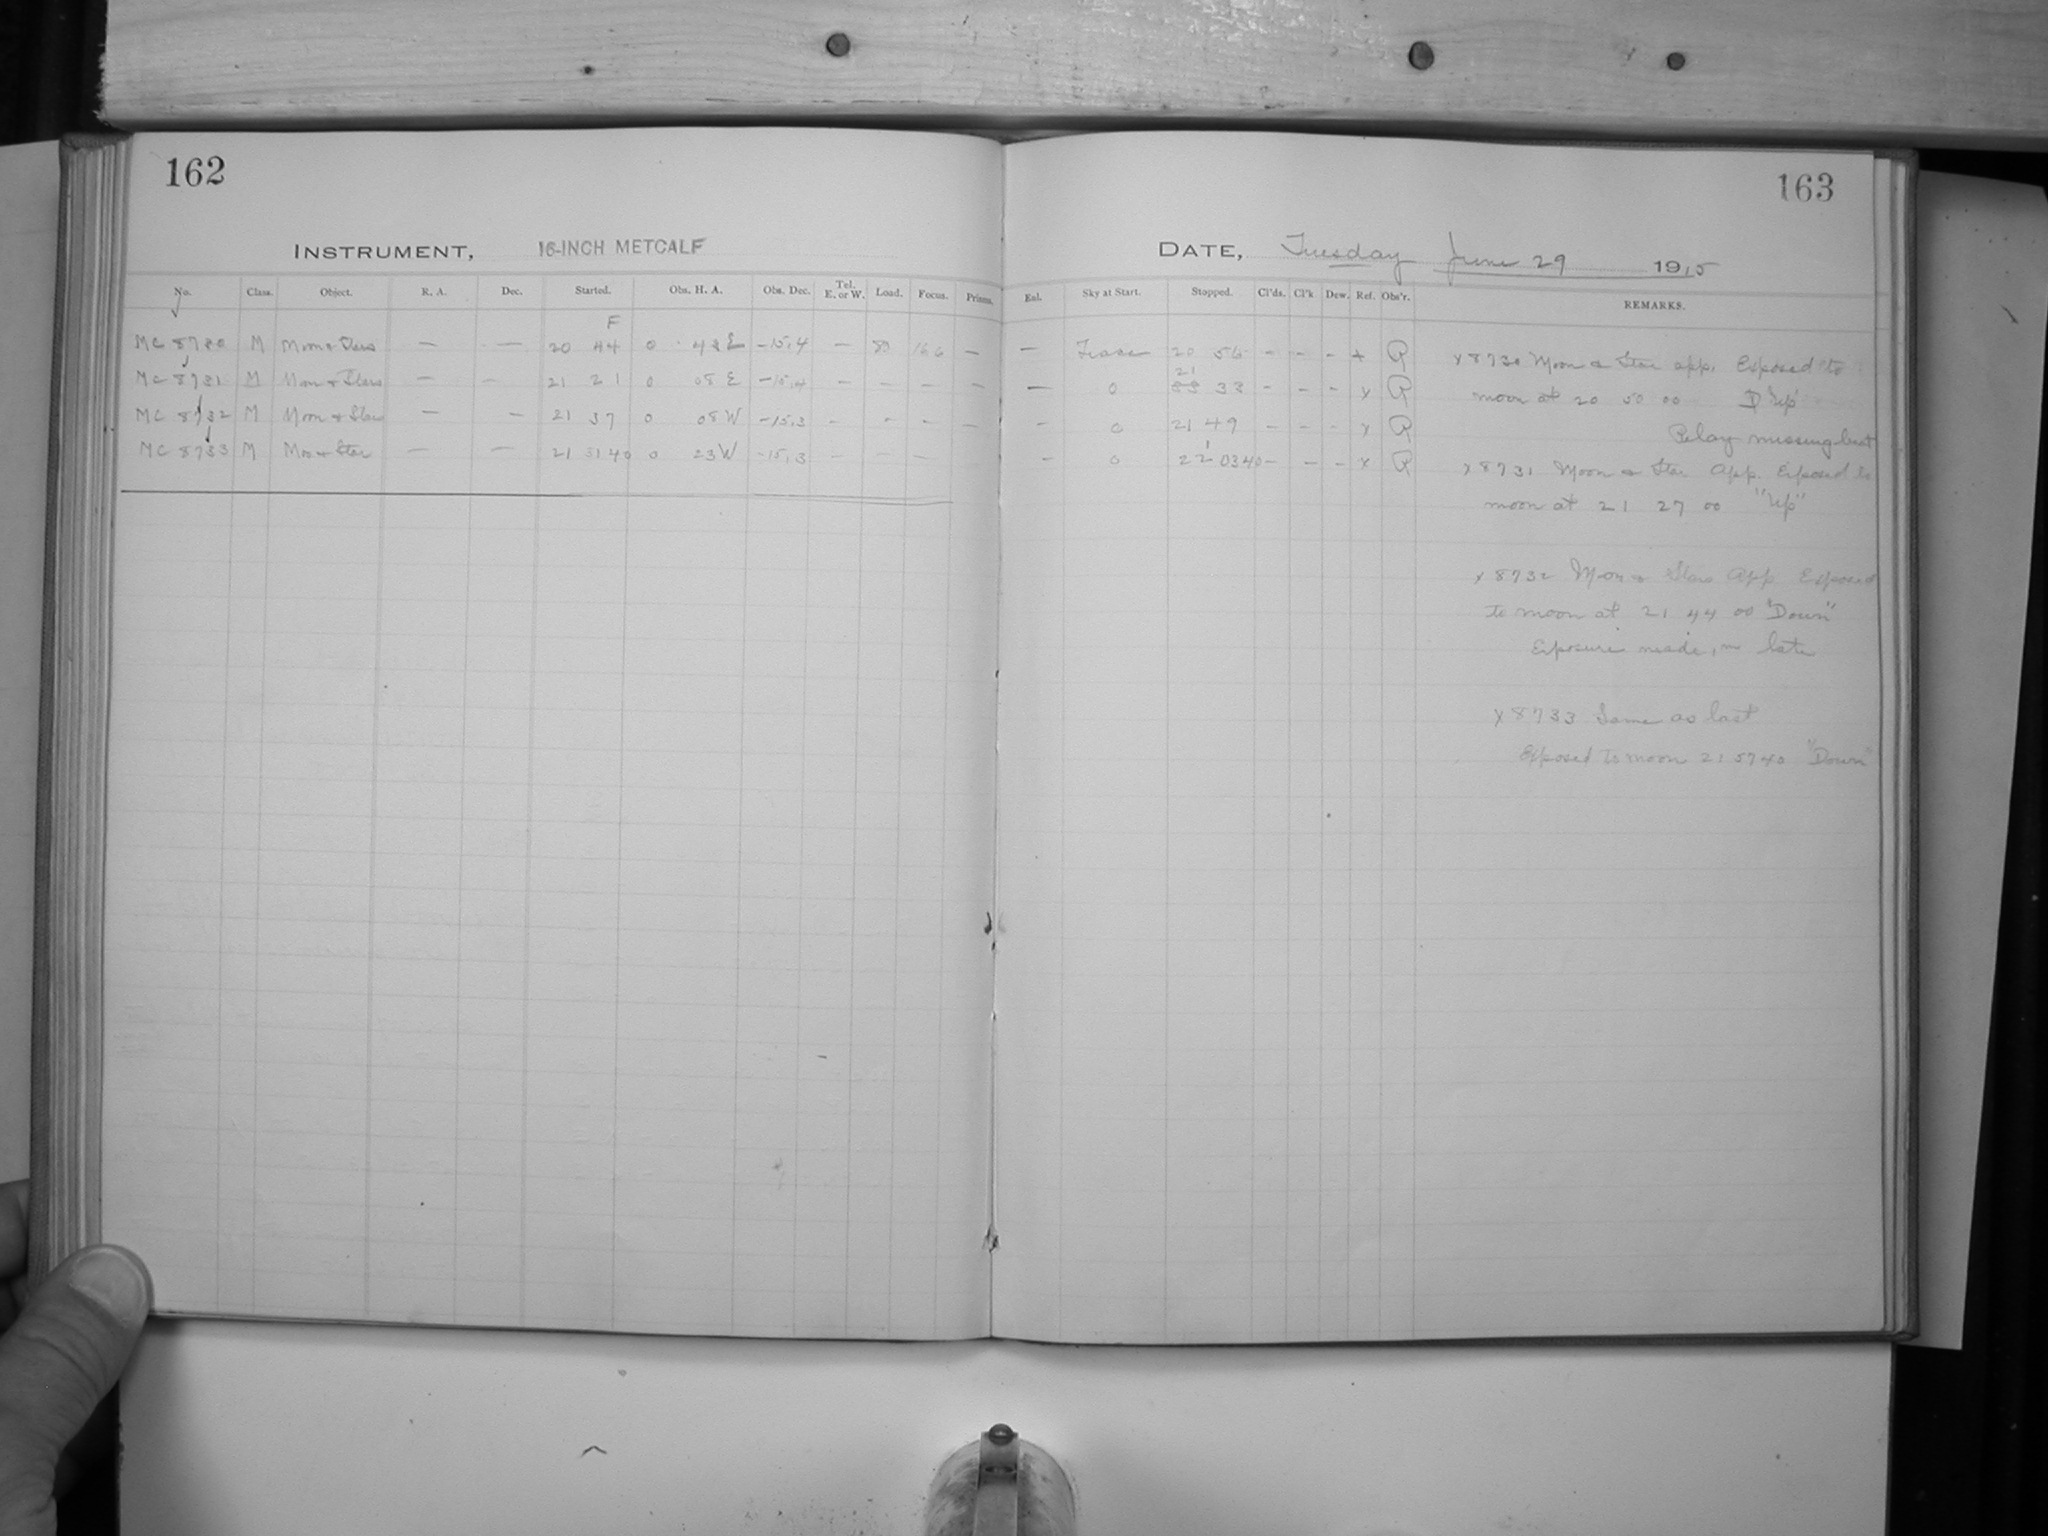 162
INSTRUMENT, 16-INCH METCALF
No. Class. Object. R. A. Dec. Started. Obs. H. A. Obs. Dec. Tel. E. or W. Load. Focus. Prisms.
F
MC 8730 M Moon & Stars — — 20 44 0 43 E -15.4 — 166 —
MC 8731 M Moon & Stars — — 21 21 0 08 E -15.4 — — — —
MC 8732 M Moon & Star — — 21 37 0 08 W -15.3 - - - —
MC 8733 M Moon & Star — — 21 51 40 0 23 W -15.3 — — —
163
DATE, Tuesday June 29 1915
Exl. Sky at Start. Stopped. Cl'ds. Cl'k Dew. Ref. Obs'r. REMARKS.
— 20 56 - - - x R
— 0 21 33 - - - x R
- 0 21 49 - - - x R
- 0 22 03 40 - - - x R
x 8730 Moon & Star app. Exposed to
moon at 20 50 00 "Up"
Relay missing beat
x 8731 Moon & Star App. Exposed to
moon at 21 27 00 "Up"
x 8732 Moon & Stars App Exposed
to moon at 21 44 00 "Down"
Exposure made late
x 8733 Same as last
Exposed to moon 21 57 40 "Down"